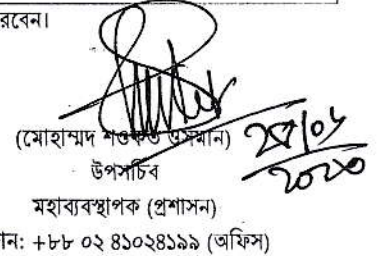 রবেন।
(মোহাম্মদ শওকত ওসমান)
উপসচিব
মহাব্যবস্থাপক (প্রশাসন)
ন: +৮৮ ০২ ৪১০২৪১৯৯ (অফিস)